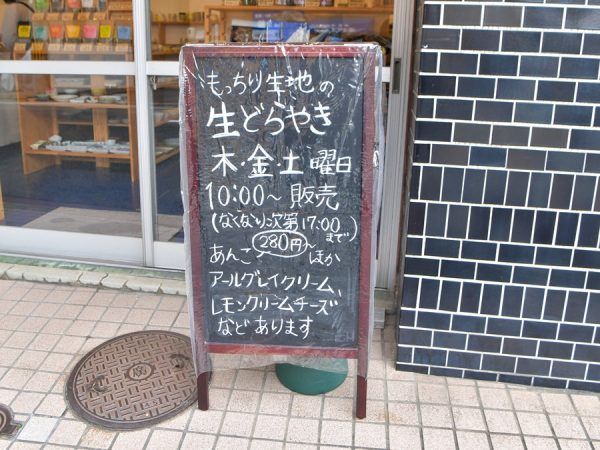 もっちり生地の
生どらやき
木・金・土曜日
10:00〜販売
(なくなり次第17:00まで)
280円〜
あんこ ほか
アールグレイクリーム、
レモンクリームチーズ
などあります